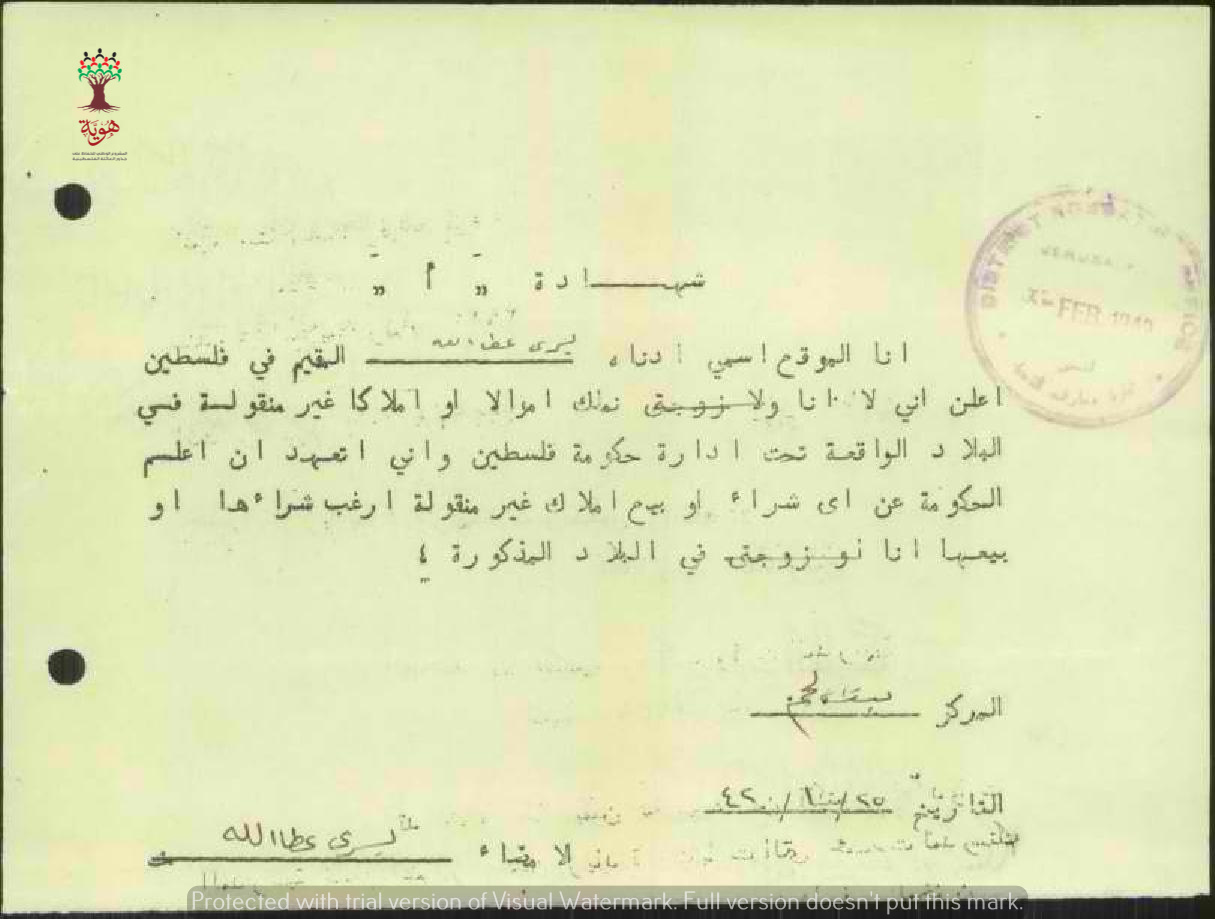 هوية
DISTRICT
FEB 1942
شهـــــادة " أ "
انا الموقع اسمي ادناه يسرى عطا الله المقيم في فلسطين
اعلن اني لا انا ولا زوجتى نملك اموالا او املاكا غير منقولة فـي
البلاد الواقعة تحت ادارة حكومة فلسطين واني اتعهد ان اعلـم
الحكومة عن اى شراء او بيع املاك غير منقولة ارغب شراءها او
بيعها انا او زوجتى في البلاد المذكورة ؛
المركز بيت لحم
التاريخ ٢٥/١/٤٢
الامضاء يسرى عطاالله
Protected with trial version of Visual Watermark. Full version doesn't put this mark.